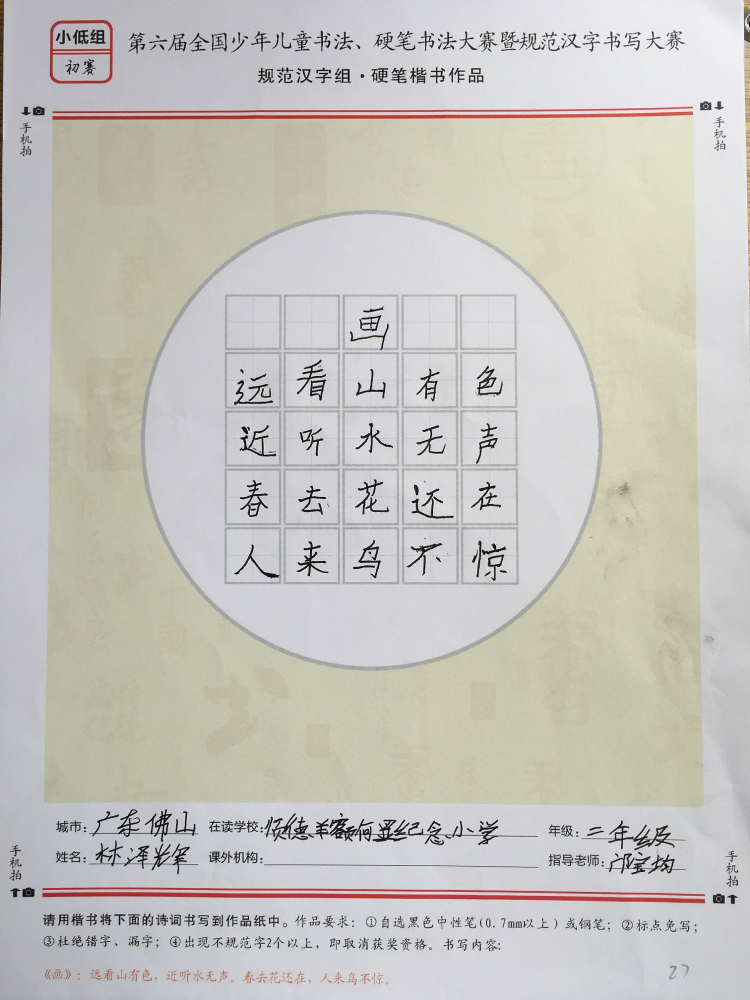 小低组
初赛
第六届全国少年儿童书法、硬笔书法大赛暨规范汉字书写大赛
规范汉字组·硬笔楷书作品
手机拍
手机拍
画
远看山有色
近听水无声
春去花还在
人来鸟不惊
城市：广东佛山 在读学校：顺德羊额何显纪念小学 年级：二年级
姓名：林泽辉 课外机构： 指导老师：邝宝均
手机拍
手机拍
请用楷书将下面的诗词书写到作品纸中。作品要求：①自选黑色中性笔(0.7mm以上)或钢笔；②标点免写；
③杜绝错字、漏字；④出现不规范字2个以上，即取消获奖资格。书写内容：
《画》：远看山有色，近听水无声。春去花还在，人来鸟不惊。
27